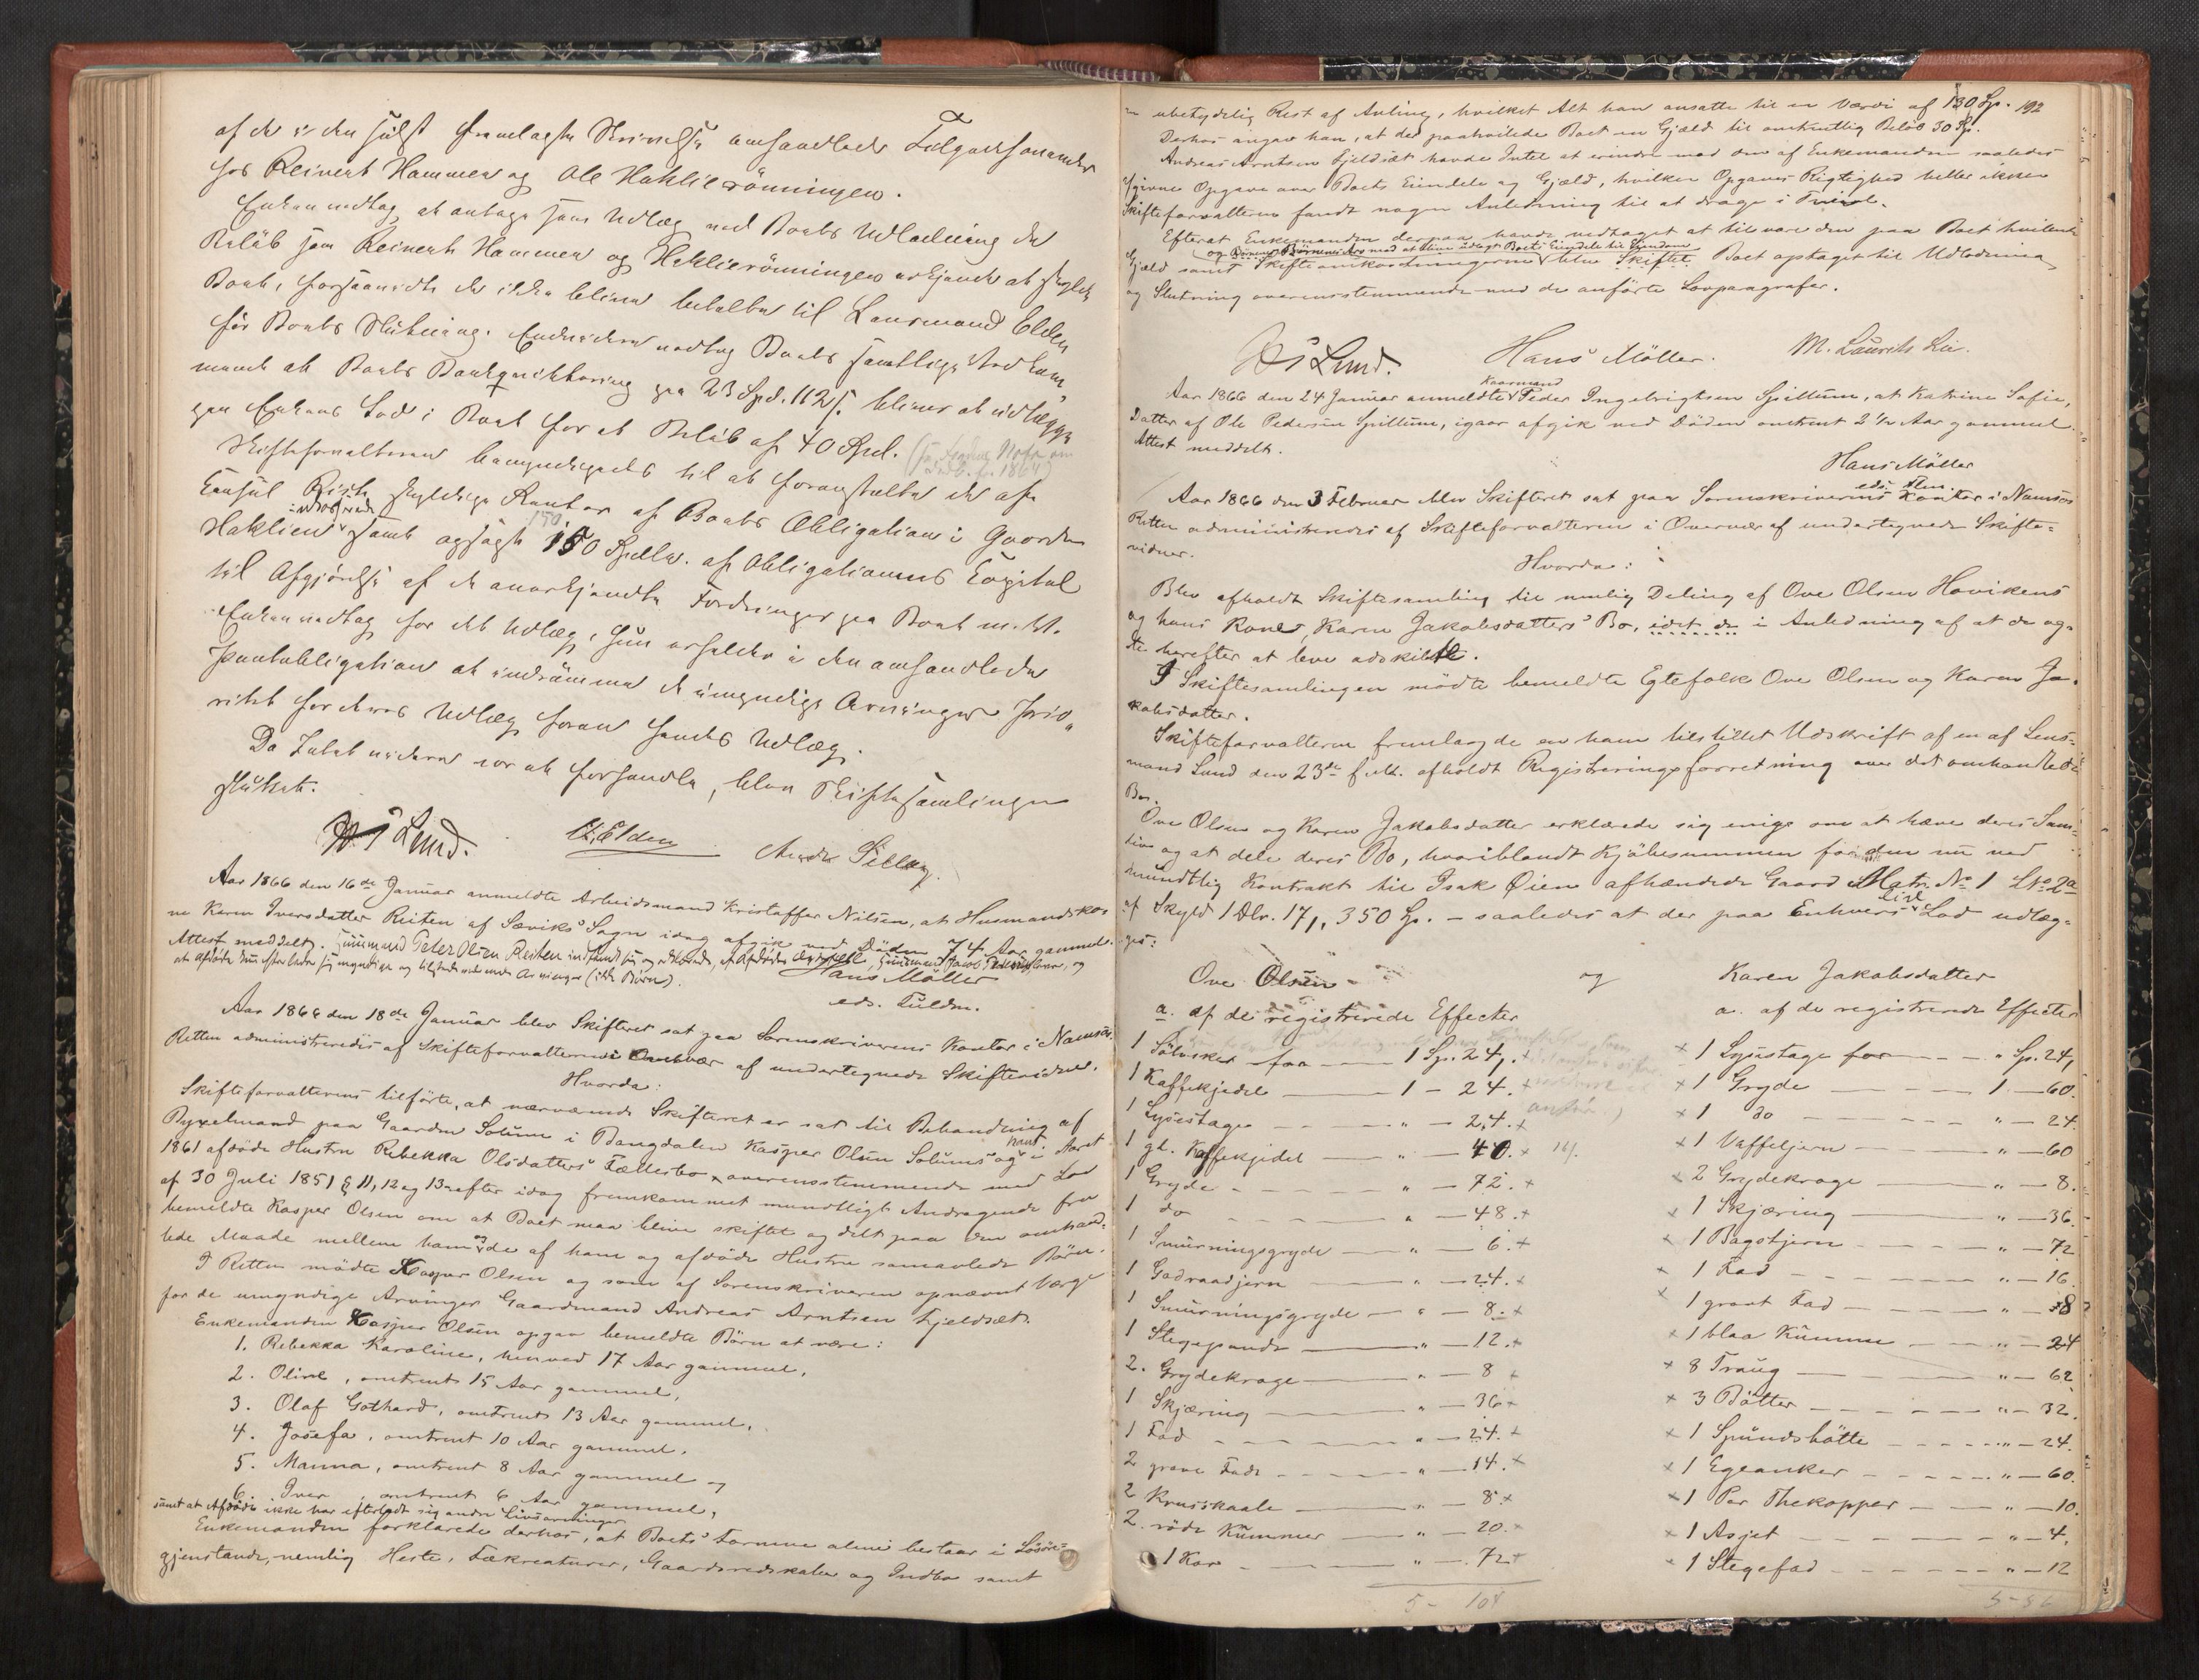 af de i den sidst fremlagte Skrivelse omhandlede Tilgodehavender
hos Reinert Hammer og Ole Haklierønningen.
Enken vedtog at antage som Udlæg ved Boets Udlodning de
Beløb som Reinert Hammer og Haklierønningen erkjendte at skylde
Boet, forsaavidt de ikke bliver betalte til Lensmand Elden
før Boets Slutning. Endvidere vedtog Boets samtlige Vedkom-
mende at Boets Bankqvittering paa 23 Spd. 112 s. bliver at udlægge
paa Enkens Lod i Boet for et Beløb af 40 Spd.
Skifteforvalteren bemyndigedes til at foranstalte de af
Consul skyldige Renter af Boets Obligation i Gaarden
Haklien inddrevne samt opsagt 150 Spdlr. af Obligationens Capital
til Afgjørelse af de anerkjendte Fordringer paa Boet m. M.
Enken vedtog for det Udlæg, hun erholder i den omhandlede
Pantobligation at indrømme de umyndige Arvinger Prio-
ritet for deres Udlæg foran hendes Udlæg.
Da Intet videre var at forhandle, blev Skiftesamlingen
sluttet.
Lund. Elden
Aar 1866 den 16de Januar anmeldte Arbeidsmand Kristoffer Nilsen, at Husmandsko-
ne Karen Iversdatter Reiten af Sæviks Sogn idag afgik ved Døden 74 Aar gammel.
Attest meddelt. Huusmand Peter Olsen Reiten indfandt sig og erklærede, at Afdødes
at afdøde kun efterlader sig myndige og tilstedeværende Arvinger (ikke Børn).
Hans Møller
eds. Fuldm.
Aar 1866 den 18de Januar blev Skifteret sat paa Sorenskriverens Kontor i Namsos.
Retten administreredes af Skifteforvalteren i Overvær af undertegnede Skiftevidner.
Hvorda:
Skifteforvalteren tilførte, at nærværende Skifteret er sat til Behandling af
Byxelmand paa Gaarden Solum i Bangdalen Kasper Olsen Solums og hans i Aaret
1861 afdøde Hustru Rebekka Olsdatters Fællesbo overensstemmende med Lov
af 30 Juli 1851 § 11, 12 og 13 efter idag fremkommet mundtligt Andragende fra
bemeldte Kasper Olsen om at Boet maa blive skiftet og delt paa den omhand-
lede Maade mellem ham og de af ham og afdøde Hustru samavlede Børn.
I Retten mødte Kasper Olsen og som af Sorenskriveren opnævnt Værge
for de umyndige Arvinger Gaardmand Andreas Arntsen Fjeldsæt.
Enkemanden Kasper Olsen opgav bemeldte Børn at være:
1. Rebekka Karoline, henved 17 Aar gammel,
2. Olive, omtrent 15 Aar gammel,
3. Olaf Gothard, omtrent 13 Aar gammel,
4. Josefa, omtrent 10 Aar gammel,
5. Manna, omtrent 8 Aar gammel og
6. Iver, omtrent 6 Aar gammel,
samt at Afdøde ikke har efterladt sig andre Livsarvinger
Enkemanden forklarede derhos, at Boets Formue alene bestaar i Løsøre-
gjenstande, nemlig Heste, Fækreaturer, Gaardsredskaber og Indbo samt
192
en ubetydelig Rest af Avling, hvilket Alt han ansatte til en Værdi af 130 Sp.
Derhos angav han, at der paahvilede Boet en Gjæld til omtrentlig Beløb 30 Sp.
Andreas Arntsen Fjeldsæt havde Intet at erindre mod den af Enkemanden saaledes
afgivne Opgave over Boets Eiendele og Gjæld, hvilken Opgaves Rigtighed heller ikke
Skifteforvalteren fandt nogen Anledning til at drage i Tvivl.
Efterat Enkemanden derpaa havde vedtaget at tilsvare den paa Boet hvilende
og Børnenes Arv mod at blive udlagt Boets Eiendele til Eiendom
Gjæld samt Skifteomkostningerne blev Skiftet Boet optaget til Udlodning
og Slutning overensstemmende med de anførte Lovparagrafer.
Lund. Hans Möller. M. Laurits Lie.
Aar 1866 den 24 Januar anmeldte Kaarmand Peder Ingebrigtsen Spillum, at Katrine Sofie,
Datter af Ole Pedersen Spillum, igaar afgik ved Døden omtrent 2 1/2 Aar gammel.
Attest meddelt.
Hans Möller
eds. Flm.
Aar 1866 den 3 Februar blev Skifteret sat paa Sorenskriverens Kontor i Namsos
Retten administreredes af Skifteforvalteren i Overvær af undertegnede Skifte-
vidner.
Hvorda:
Blev afholdt Skiftesamling til venlig Deling af Ove Olsen Hovikens
og hans Kone Karen Jakobsdatters Bo, idet de i Anledning af at de ag-
te herefter at leve adskilte.
I Skiftesamlingen mødte bemeldte Egtefolk Ove Olsen og Karen Ja-
kobsdatter.
Skifteforvalteren fremlagde en ham tilstillet Udskrift af en af Lens-
mand Lund den 23de f. M. afholdt Registreringsforretning over det omhandlede
Bo.
Ove Olsen og Karen Jakobsdatter erklærede sig enige om at hæve deres Sam-
liv og at dele deres Bo, hvoriblandt Kjøbesummen for den nu ved
mundtlig Kontrakt til Isak Øien afhændede Gaard Matr. No 1 L No 2a
af Skyld 1 Dlr. 17, 350 Sp. – saaledes at der paa Enhvers Lod udlæg-
ges:
Ove Olsen og Karen Jakobsdatter
a. af de registrerede Effecter a. af de registrerede Effecter
1 Sølvskee for — 1 Sp. 24, + × 1 Lysestage for — " Sp. 24,
1 Kaffekjedel — 1 – 24. + × 1 Gryde — 1 – 60.
1 Lysestage — " – 24. + × 1 do — " – 24.
1 gl. Kaffekjedel — " – 40. + × 1 Vaffeljern — " – 60
1 Gryde — " – 72. + × 2 Grydekroge — " – 8.
1 do — " – 48. + × 1 Skjæring — " – 36.
1 Smurningsgryde — " – 6. + × 1 Bagstjern — " – 72
1 Godraadjern — " – 24. + × 1 Fad — " – 16.
1 Smurningsgryde — " – 8. + × 1 gravt Fad — " – 8
1 Stegepande — " – 12. + × 1 blaa Kumme — " – 24
2. Grydekroge — " – 8 + × 8 Traug — " – 62
1 Skjæring — " – 36 + × 3 Bøtter — " – 32.
1 Fad — " – 24. + × 1 Spundsbøtte — " – 24.
2 grave Fade — " – 14. + × 1 Egeanker — " – 60.
2 Krusskaale — " – 8 + × 1 Par Thekopper — " – 10.
2. røde Kummer — " – 20. + × 1 Asjet — " – 4.
1 Kar — " – 72 + × 1 Stegefad — " – 12
5 – 104 5 – 56